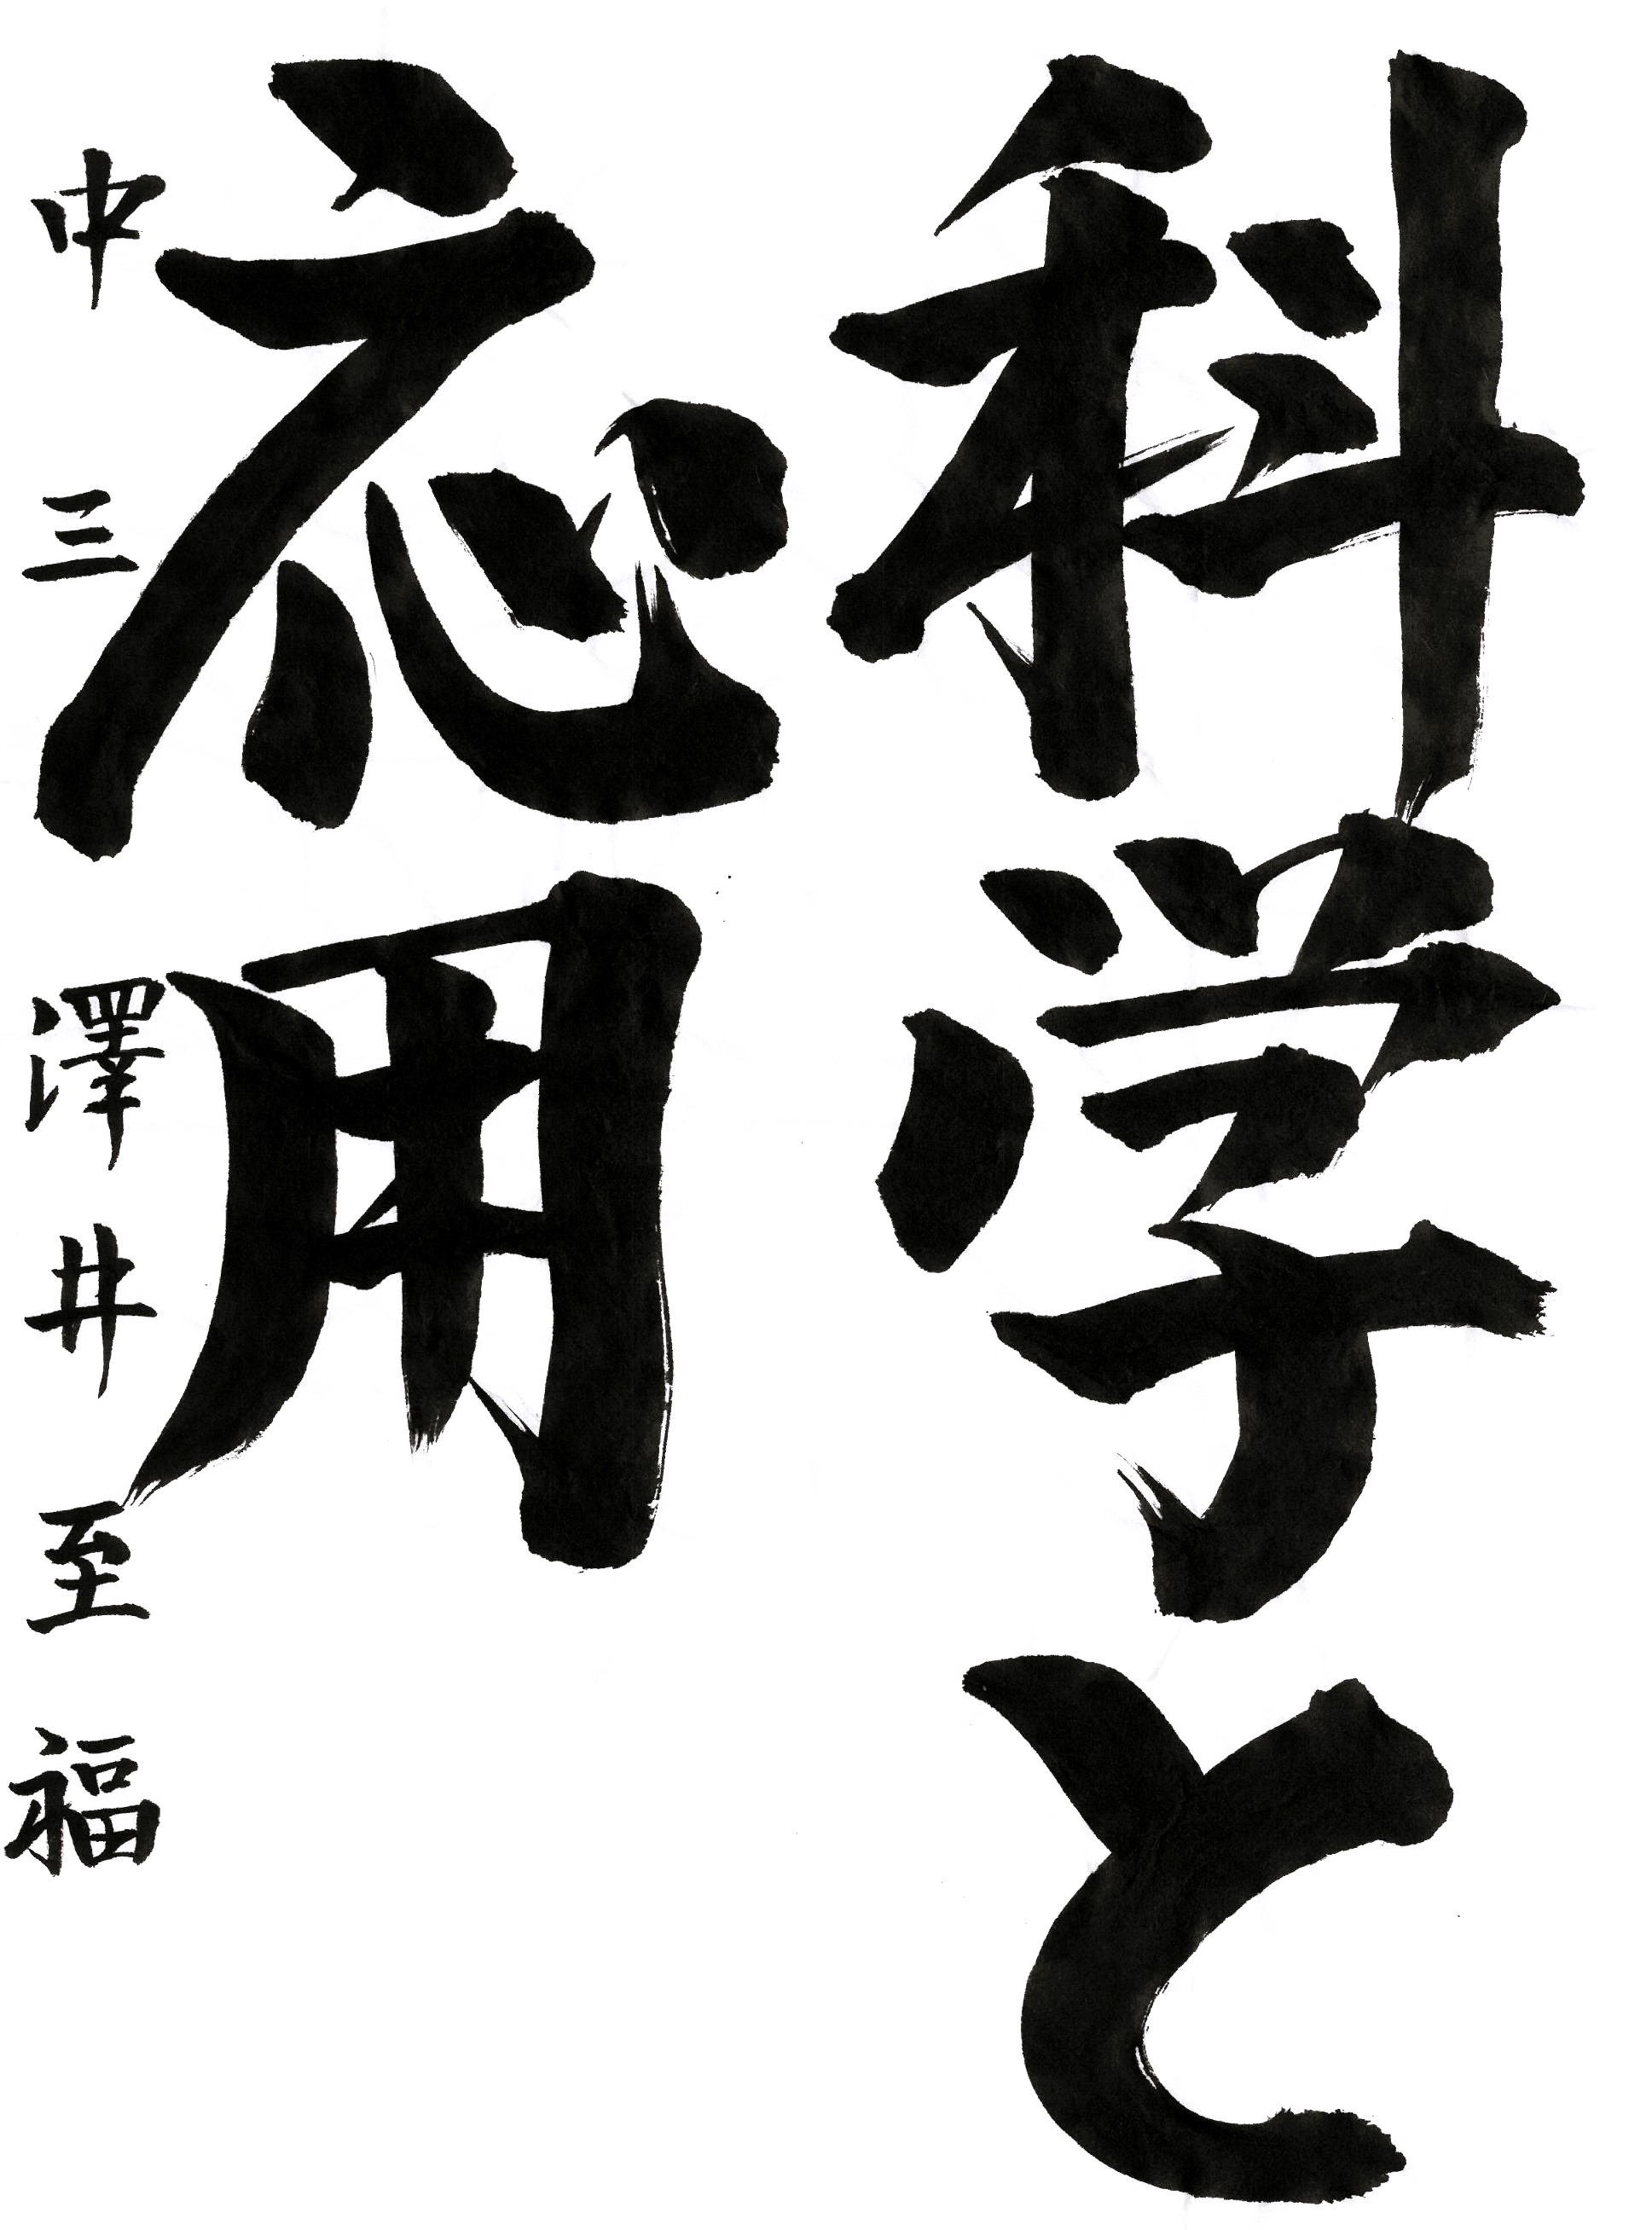 科学と
応用
中三澤井至福